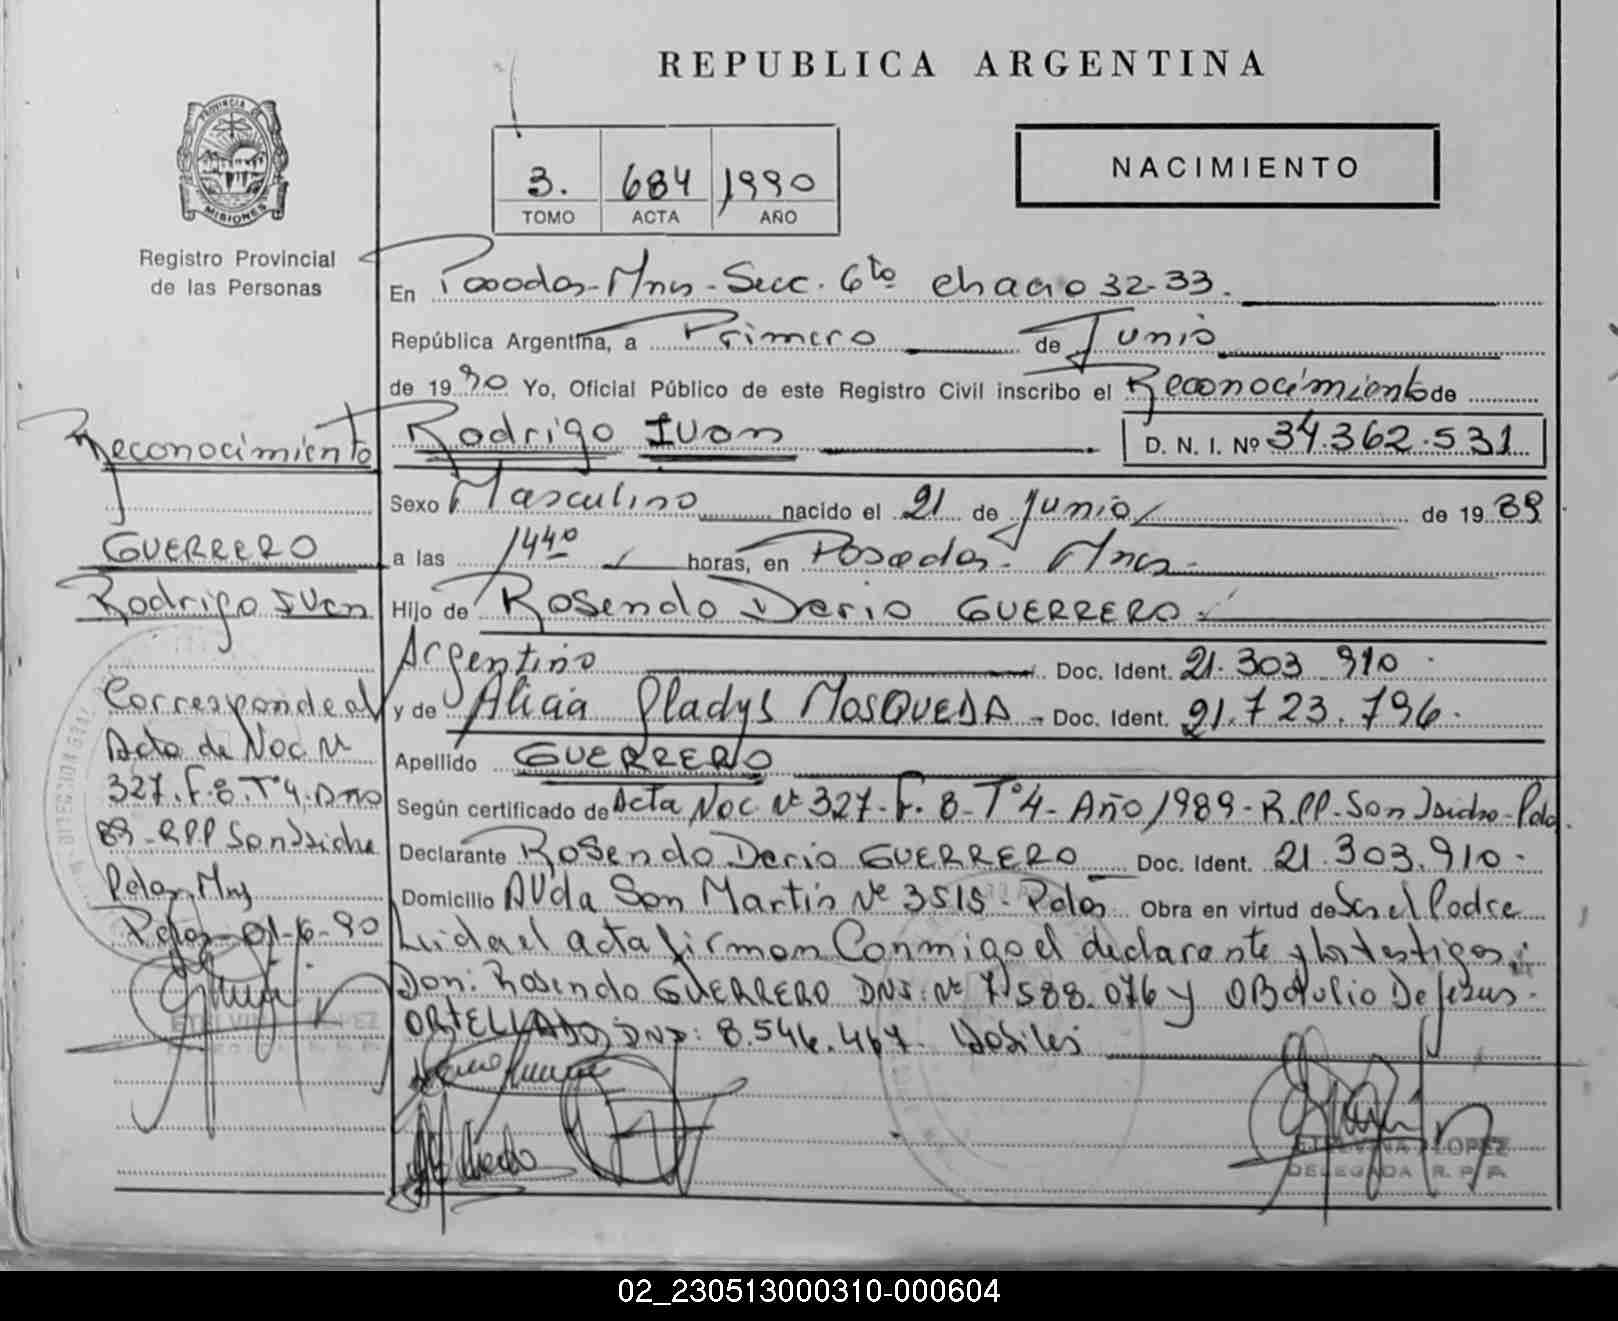 REPUBLICA ARGENTINA
PROVINCIA DE
MISIONES
Registro Provincial
de las Personas
3. 684 1990
TOMO ACTA AÑO
NACIMIENTO
En Posadas-Mnes-Secc. 6ta chacra 32-33.
República Argentina, a Primero de Junio
de 1990 Yo, Oficial Público de este Registro Civil inscribo el Reconocimiento de
Rodrigo Ivan D. N. I. Nº 34.362.531
Sexo Masculino nacido el 21 de Junio de 1989
a las 1440 horas, en Posadas. Mnes.
Hijo de Rosendo Dario GUERRERO
Argentino Doc. Ident. 21.303.910
y de Alicia Gladys MOSQUEDA - Doc. Ident. 21.723.796.
Apellido GUERRERO
Según certificado de Acta Nac. Nº 327-F. 8-Tº4-Año 1989-R.PP-San Isidro-Pdas.
Declarante Rosendo Dario GUERRERO Doc. Ident. 21.303.910-
Domicilio AVda San Martin Nº 3515-Pdas Obra en virtud de Ser el Padre
Leida el acta firman Conmigo el declarante y los testigos:
Don: Rosendo GUERRERO DNI: Nº 7.588.076 y OBdulio De Jesus-
ORTELLADO, DNI: 8.546.467. Habiles
Reconocimiento
GUERRERO
Rodrigo Ivan
Corresponde al
Acta de Nac Nº
327.F.8.Tº4.Año
89-R.P.P San Isidro
Pdas, Mns
Pdas-01-6-90
ETELVINA LOPEZ
DELEGADA R. P. P.
ETELVINA LOPEZ
DELEGADA R. P. P.
02_230513000310-000604